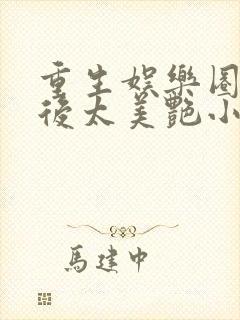 重生娛樂圈
後太美艷小
馬建中